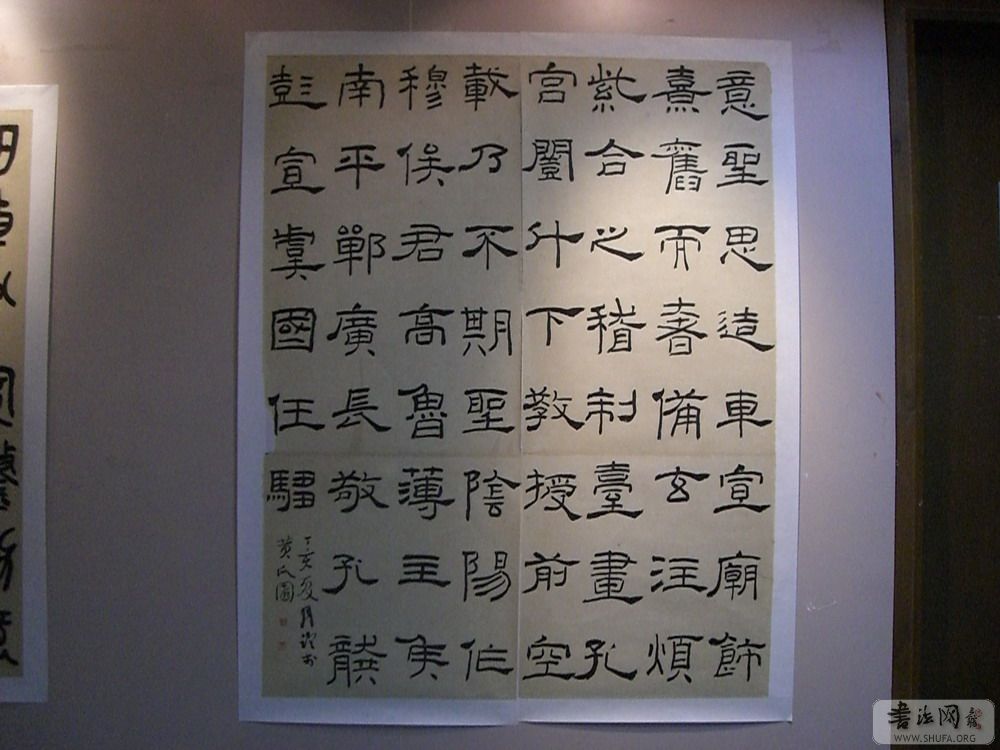 意聖思造車宣廟飾
熹舊而耆備玄汪煩
紫合之稽制臺畫孔
宮闓什下教授前空
載乃不期聖陰陽作
穆侯君高魯薄主侯
南平鄲廣長敬孔龔
彭宣虞國任
丁亥夏月
書法网
WWW.SHUFA.ORG